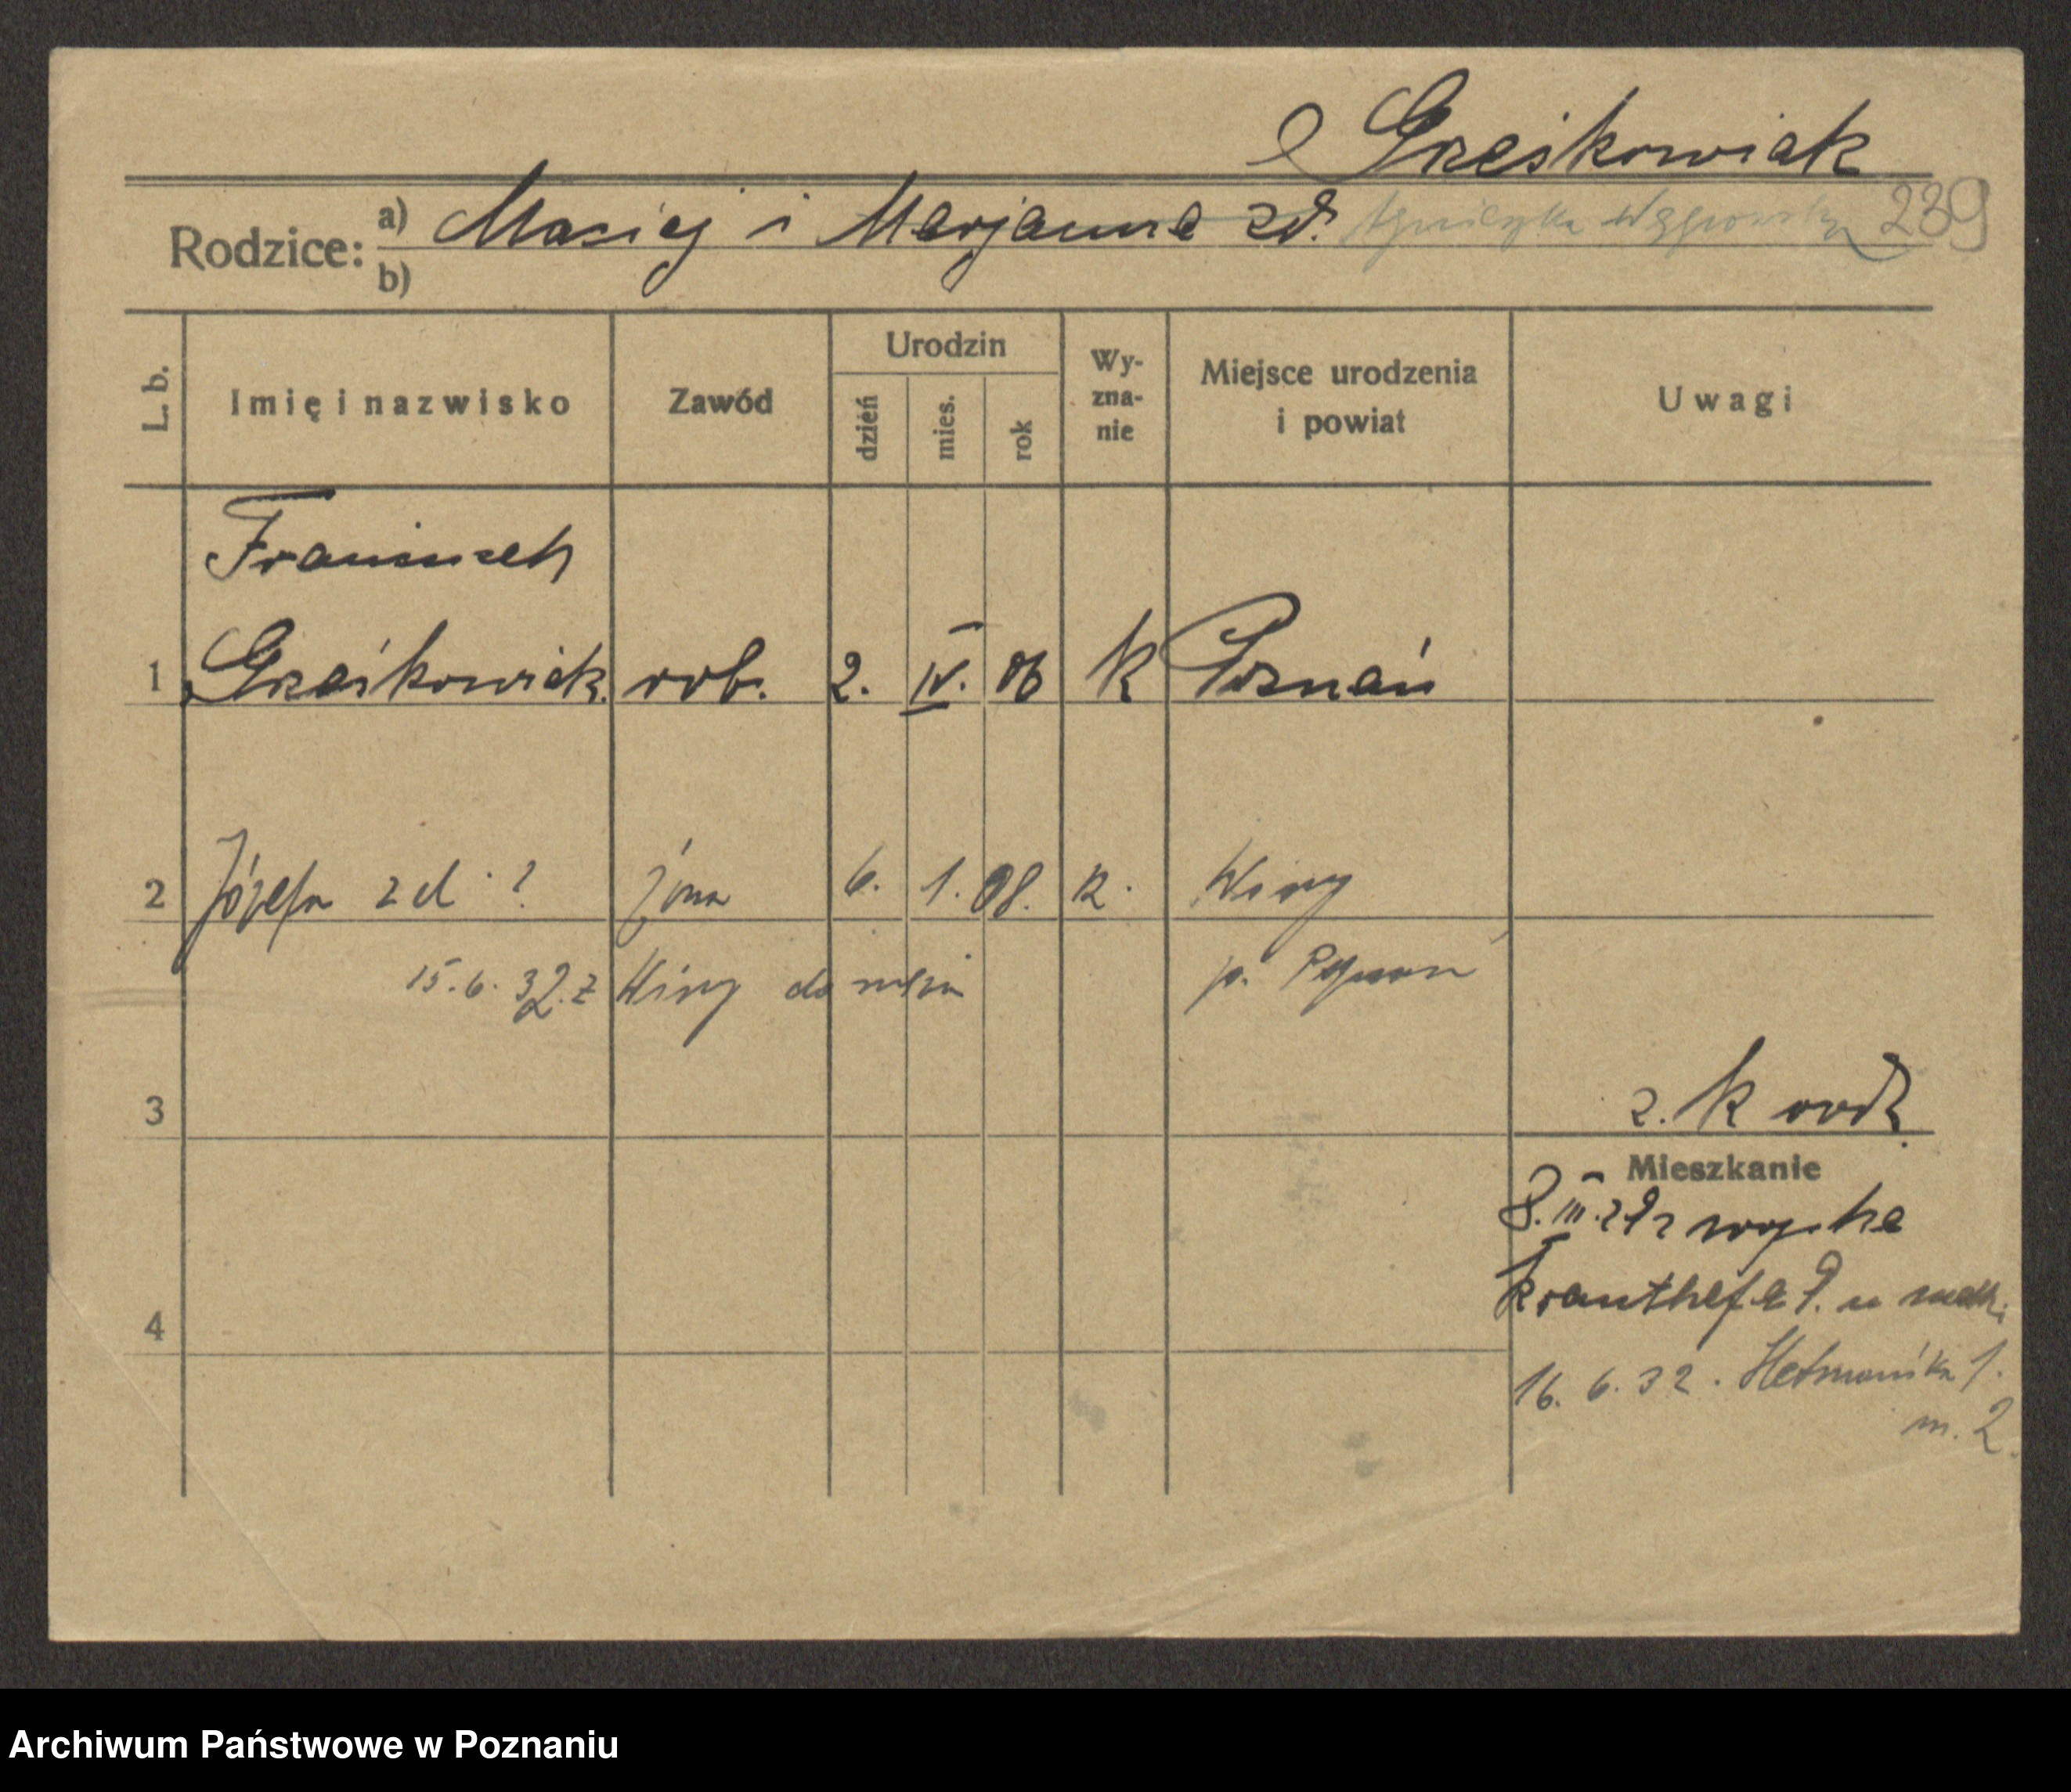 Grześkowiak
Rodzice: a) Maciej i Marjanna zd. Agnieszka Węgrowska 239
b)
L. b. Imię i nazwisko Zawód Urodzin dzień mies. rok Wyznanie Miejsce urodzenia i powiat Uwagi
Franciszek
1 Grześkowiak. rob. 2. IV. 06 k Poznań
2 Józefa zd. ? żona 6. 1. 08. k. Wiry
15. 6. 32. z Wiry do męża p. Poznań
3 z. k
Mieszkanie
8. III. 29 z wojska
Kranthofera 9. u matki
4
16. 6. 32. Hetmańska 1.
m. 2.
Archiwum Państwowe w Poznaniu